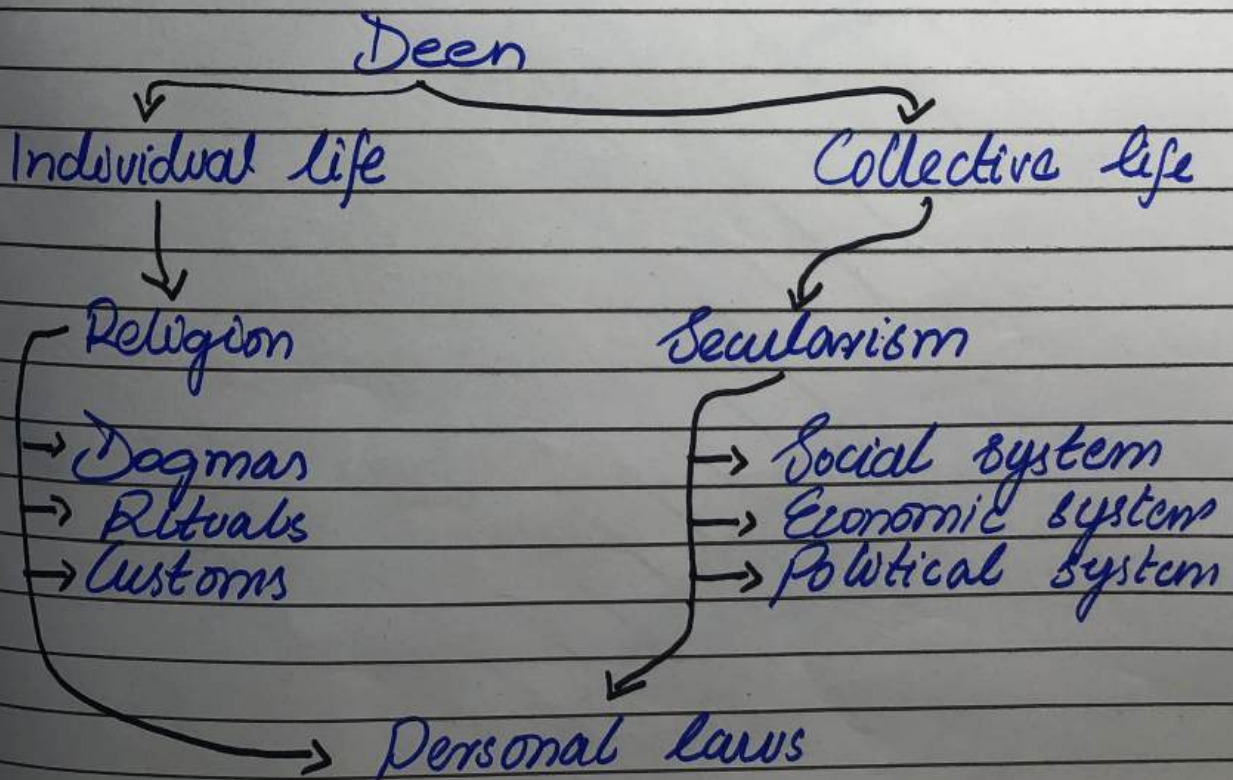 Deen
Individual life Collective life
Religion Secularism
Dogmas Social system
Rituals Economic system
Customs Political system
Personal laws